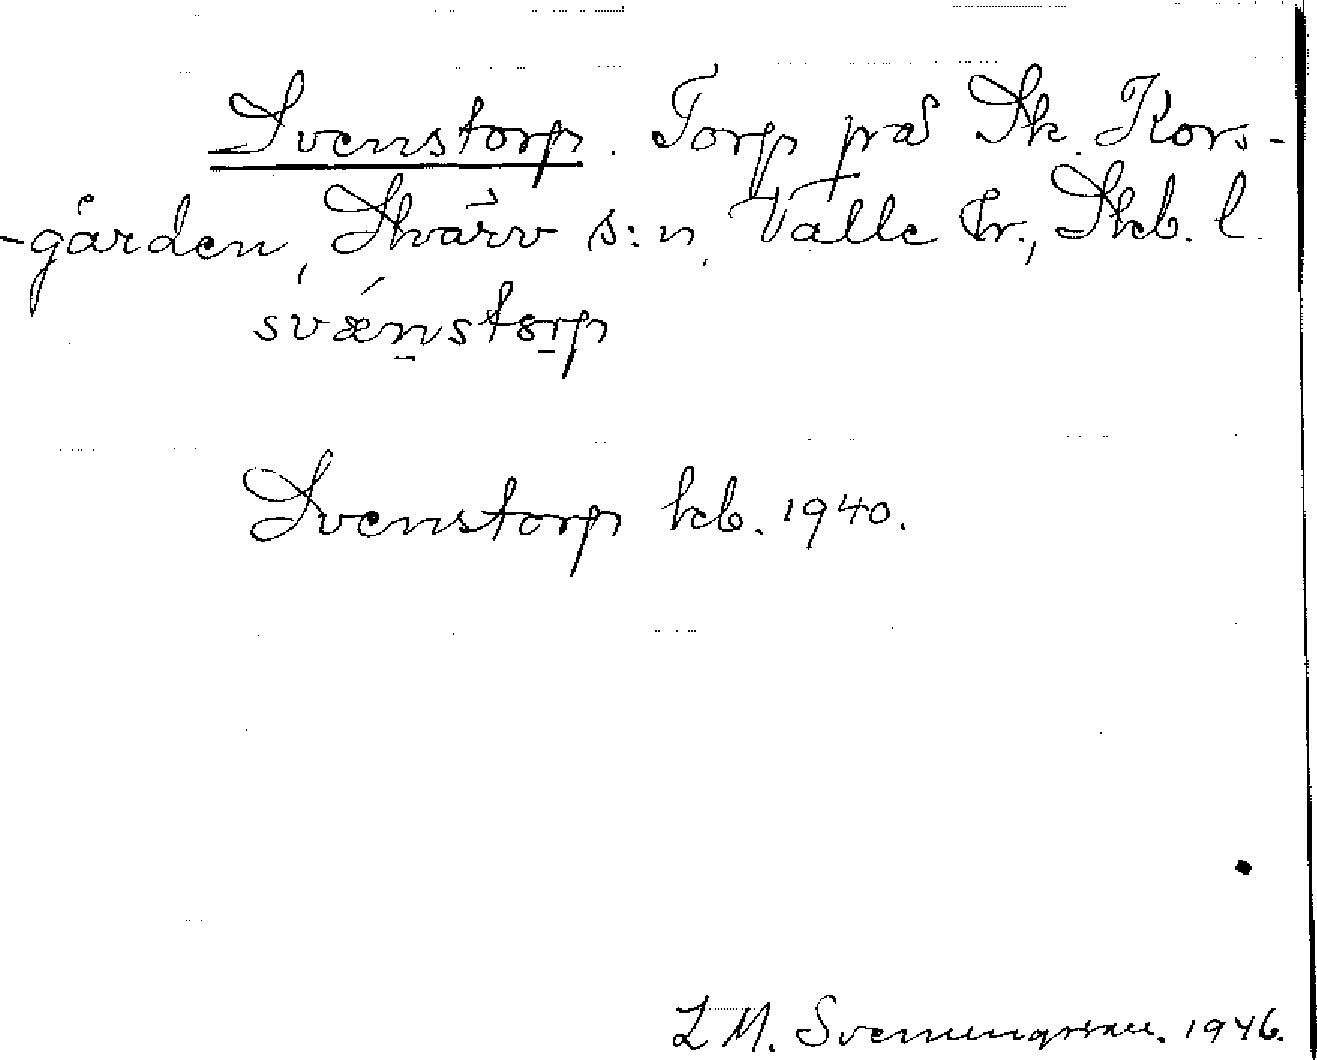 Svenstorp. Torp på Sk. Kors-
-gården, Skärv s:n, Valle hr., Skb. l.
svǽnstorp
Svenstorp kb. 1940.
L M. Svenungsson. 1946.